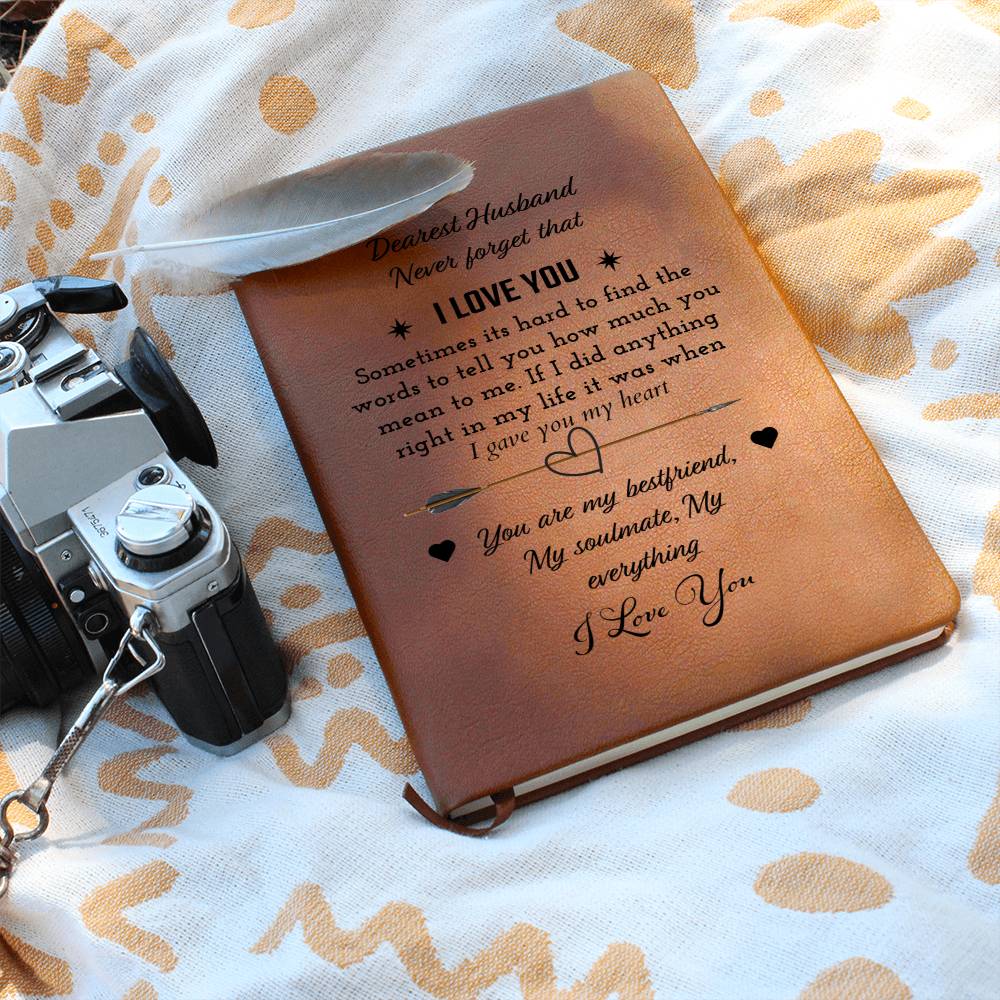 Dearest Husband
Never forget that
I LOVE YOU
Sometimes its hard to find the
words to tell you how much you
mean to me. If I did anything
right in my life it was when
I gave you my heart
You are my bestfriend,
My soulmate, My
everything
I Love You
367547A